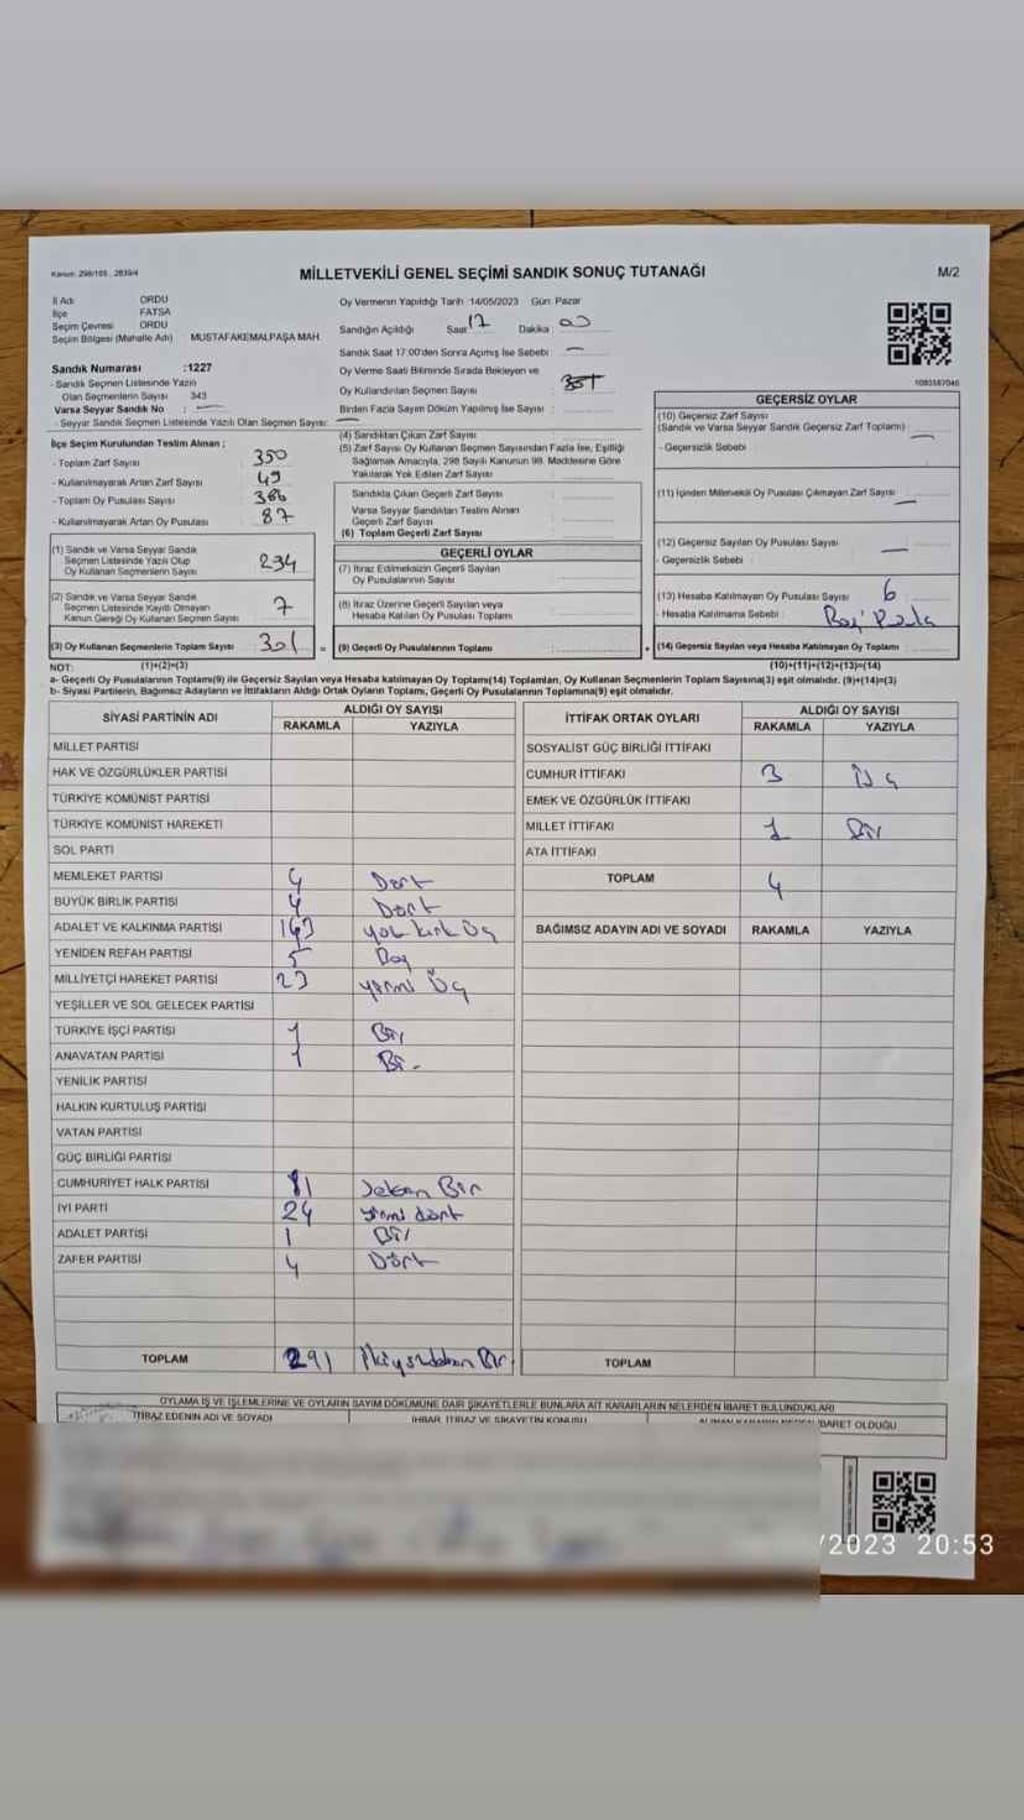 Kanun: 298/105 , 2839/4
MİLLETVEKİLİ GENEL SEÇİMİ SANDIK SONUÇ TUTANAĞI
M/2
İl Adı ORDU
İlçe FATSA
Seçim Çevresi ORDU
Seçim Bölgesi (Mahalle Adı) MUSTAFAKEMALPAŞA MAH.
Oy Vermenin Yapıldığı Tarih :14/05/2023 Gün: Pazar
Sandığın Açıldığı Saat 17 Dakika : 00
Sandık Saat 17:00'den Sonra Açılmış İse Sebebi :
Sandık Numarası :1227
- Sandık Seçmen Listesinde Yazılı
Olan Seçmenlerin Sayısı 343
Varsa Seyyar Sandık No :
- Seyyar Sandık Seçmen Listesinde Yazılı Olan Seçmen Sayısı:
Oy Verme Saati Bitiminde Sırada Bekleyen ve
Oy Kullandırılan Seçmen Sayısı :
Birden Fazla Sayım Döküm Yapılmış İse Sayısı :
1083587046
İlçe Seçim Kurulundan Teslim Alınan ;
- Toplam Zarf Sayısı 350
- Kullanılmayarak Artan Zarf Sayısı 49
- Toplam Oy Pusulası Sayısı 388
- Kullanılmayarak Artan Oy Pusulası 87
(1) Sandık ve Varsa Seyyar Sandık
Seçmen Listesinde Yazılı Olup
Oy Kullanan Seçmenlerin Sayısı 294
(2) Sandık ve Varsa Seyyar Sandık
Seçmen Listesinde Kayıtlı Olmayan
Kanun Gereği Oy Kullanan Seçmen Sayısı 7
(3) Oy Kullanan Seçmenlerin Toplam Sayısı 301 =
(4) Sandıktan Çıkan Zarf Sayısı
(5) Zarf Sayısı Oy Kullanan Seçmen Sayısından Fazla İse, Eşitliği
Sağlamak Amacıyla, 298 Sayılı Kanunun 98. Maddesine Göre
Yakılarak Yok Edilen Zarf Sayısı
Sandıkta Çıkan Geçerli Zarf Sayısı
Varsa Seyyar Sandıktan Teslim Alınan
Geçerli Zarf Sayısı
(6) Toplam Geçerli Zarf Sayısı
GEÇERLİ OYLAR
(7) İtiraz Edilmeksizin Geçerli Sayılan
Oy Pusulalarının Sayısı
(8) İtiraz Üzerine Geçerli Sayılan veya
Hesaba Katılan Oy Pusulası Toplamı
(9) Geçerli Oy Pusulalarının Toplamı +
GEÇERSİZ OYLAR
(10) Geçersiz Zarf Sayısı
(Sandık ve Varsa Seyyar Sandık Geçersiz Zarf Toplamı)
- Geçersizlik Sebebi
(11) İçinden Milletvekili Oy Pusulası Çıkmayan Zarf Sayısı
(12) Geçersiz Sayılan Oy Pusulası Sayısı
- Geçersizlik Sebebi
(13) Hesaba Katılmayan Oy Pusulası Sayısı 6
- Hesaba Katılmama Sebebi :
(14) Geçersiz Sayılan veya Hesaba Katılmayan Oy Toplamı
NOT: (1)+(2)=(3) (10)+(11)+(12)+(13)=(14)
a- Geçerli Oy Pusulasının Toplamı(9) ile Geçersiz Sayılan veya Hesaba katılmayan Oy Toplamı(14) Toplamları, Oy Kullanan Seçmenlerin Toplam Sayısına(3) eşit olmalıdır. (9)+(14)=(3)
b- Siyasi Partilerin, Bağımsız Adayların ve İttifakların Aldığı Ortak Oyların Toplamı, Geçerli Oy Pusulalarının Toplamına(9) eşit olmalıdır.
SİYASİ PARTİNİN ADI ALDIĞI OY SAYISI
RAKAMLA YAZIYLA
MİLLET PARTİSİ
HAK VE ÖZGÜRLÜKLER PARTİSİ
TÜRKİYE KOMÜNİST PARTİSİ
TÜRKİYE KOMÜNİST HAREKETİ
SOL PARTİ
MEMLEKET PARTİSİ 4 Dört
BÜYÜK BİRLİK PARTİSİ 4 Dört
ADALET VE KALKINMA PARTİSİ 143 yüz kırk üç
YENİDEN REFAH PARTİSİ 5 Beş
MİLLİYETÇİ HAREKET PARTİSİ 23 yirmi Üç
YEŞİLLER VE SOL GELECEK PARTİSİ
TÜRKİYE İŞÇİ PARTİSİ 1 Bir
ANAVATAN PARTİSİ 1 Bir
YENİLİK PARTİSİ
HALKIN KURTULUŞ PARTİSİ
VATAN PARTİSİ
GÜÇ BİRLİĞİ PARTİSİ
CUMHURİYET HALK PARTİSİ 81 Seksen Bir
İYİ PARTİ 24 yirmi dört
ADALET PARTİSİ 1 Bir
ZAFER PARTİSİ 4 Dört
TOPLAM 291
İTTİFAK ORTAK OYLARI ALDIĞI OY SAYISI
RAKAMLA YAZIYLA
SOSYALİST GÜÇ BİRLİĞİ İTTİFAKI
CUMHUR İTTİFAKI 3 Üç
EMEK VE ÖZGÜRLÜK İTTİFAKI
MİLLET İTTİFAKI 1 Bir
ATA İTTİFAKI
TOPLAM 4
BAĞIMSIZ ADAYIN ADI VE SOYADI RAKAMLA YAZIYLA
TOPLAM
OYLAMA İŞ VE İŞLEMLERİNE VE OYLARIN SAYIM DÖKÜMÜNE DAİR ŞİKAYETLERLE BUNLARA AİT KARARLARIN NELERDEN İBARET BULUNDUKLARI
İTİRAZ EDENİN ADI VE SOYADI İHBAR, İTİRAZ VE ŞİKAYETİN KONUSU İBARET OLDUĞU
/2023 20:53